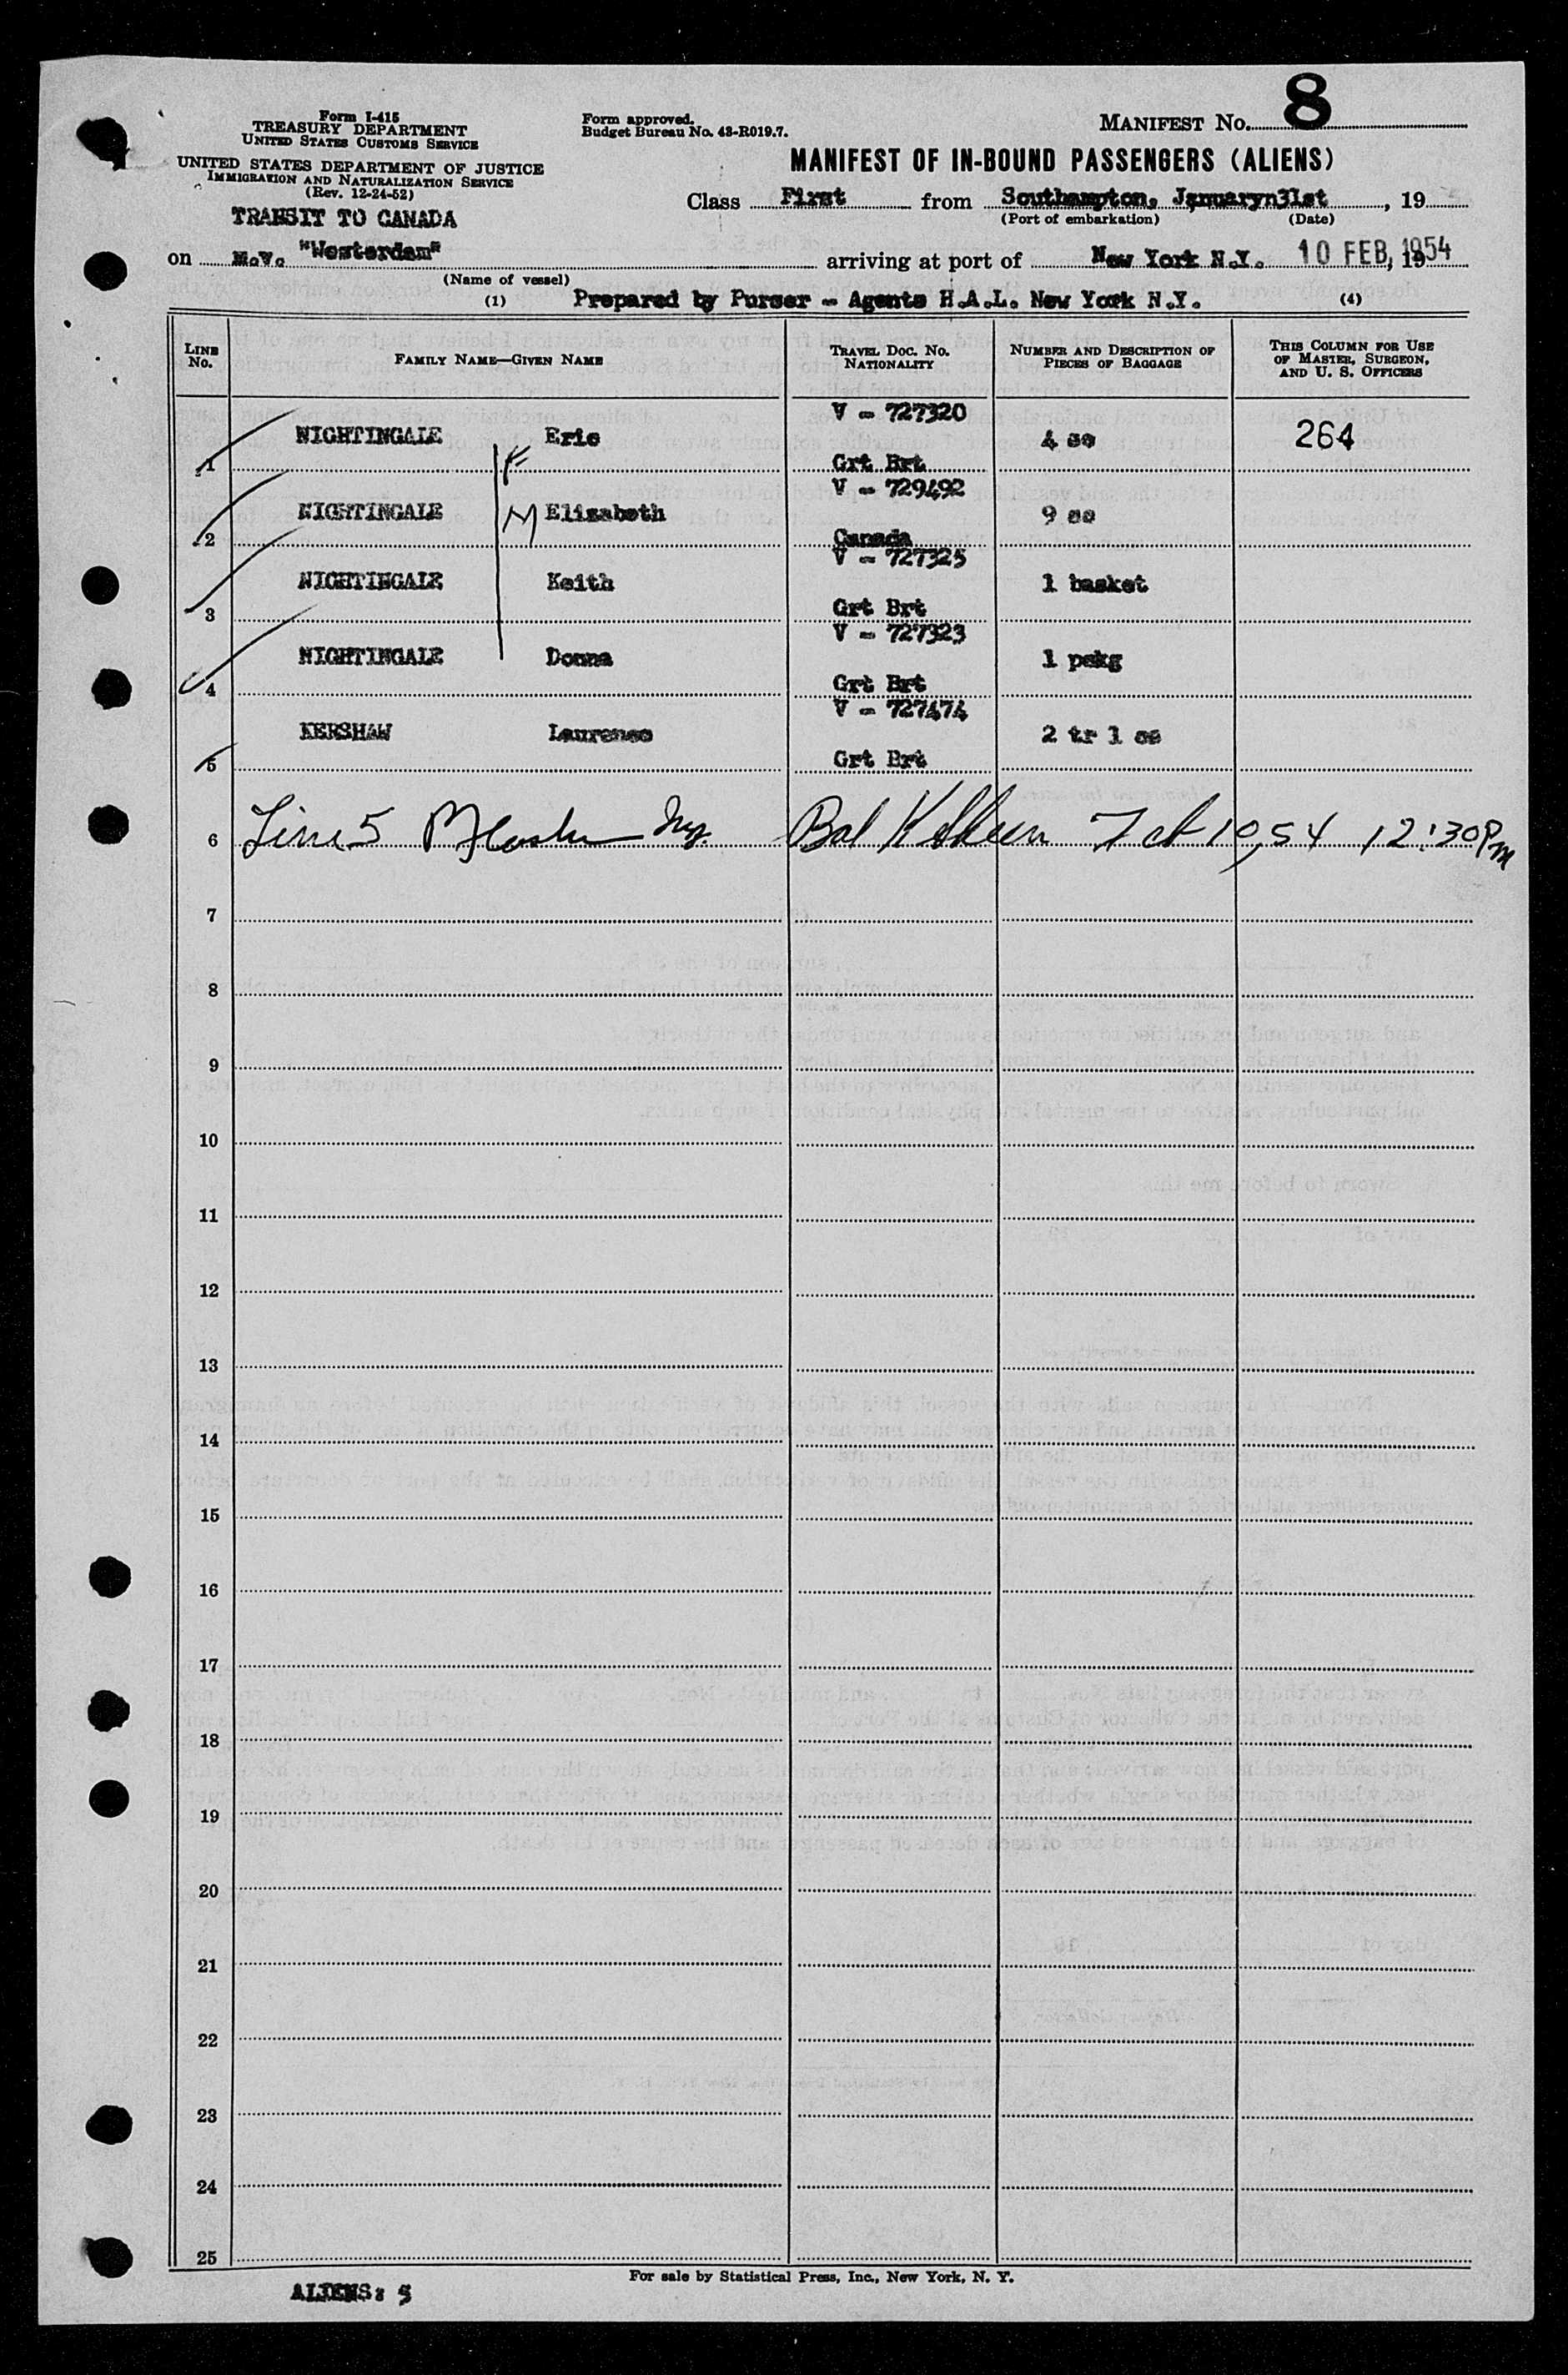 8
Form I-415
TREASURY DEPARTMENT
UNITED STATES CUSTOMS SERVICE
Form approved.
Budget Bureau No. 43-R019.7.
MANIFEST No.
UNITED STATES DEPARTMENT OF JUSTICE
IMMIGRATION AND NATURALIZATION SERVICE
(Rev. 12-24-52)
MANIFEST OF IN-BOUND PASSENGERS (ALIENS)
TRANSIT TO CANADA
Class First from Southampton, Januaryn31st, 19
(Port of embarkation) (Date)
on M.V. "Westerdam" arriving at port of New York N.Y. 10 FEB, 1954
(Name of vessel)
(1) Prepared by Purser - Agents H.A.L. New York N.Y. (4)
LINE No. FAMILY NAME—GIVEN NAME TRAVEL DOC. NO. NATIONALITY NUMBER AND DESCRIPTION OF PIECES OF BAGGAGE THIS COLUMN FOR USE OF MASTER, SURGEON, AND U. S. OFFICERS
V - 727320
1 NIGHTINGALE Eric 4 cs 264
F Grt Brt
V - 729492
2 NIGHTINGALE M Elizabeth 9 cs
Canada
V - 727325
3 NIGHTINGALE Keith 1 basket
Grt Brt
V - 727323
4 NIGHTINGALE Donna 1 pckg
Grt Brt
V - 727474
5 KERSHAW Laurence 2 tr 1 cs
Grt Brt
6 Line 5 10, 54 12:30 Pm
7
8
9
10
11
12
13
14
15
16
17
18
19
20
21
22
23
24
25
For sale by Statistical Press, Inc., New York, N. Y.
ALIENS: 5